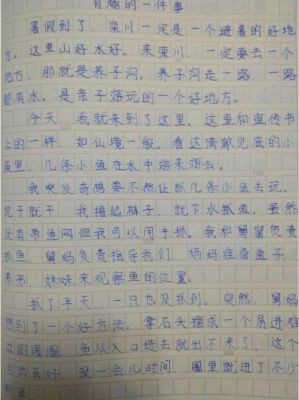 有趣的一件事
暑假到了，栾川一定是一个避暑的好地
方。这里山好水好。来栾川，一定要去一个
地方，那就是养子沟。养子沟走一路，一路
都有水。是亲子游玩的一个好地方。
今天，我就来到了这里。这里和宣传书
上的一样，如仙境一般。看达清澈见底的小
溪里，几条小鱼在水中游来游去。
我突发奇想要不然让抓几条小鱼去玩，
说干就干，我撸起裤子，就下水抓鱼，虽然
没有带鱼网但我可以用手抓。我和舅舅负责
抓鱼，舅妈负责指导我们，妈妈准备盒子，
弟弟、妹妹来观察鱼的位置。
抓了半天，一只也没抓到。突然，舅妈
想到了一个好方法。拿石头摆成一个易进难
出的圈圈，鱼从入口进去就出不来了。这个
方法真好，没一会儿时间，圈里就进了不少